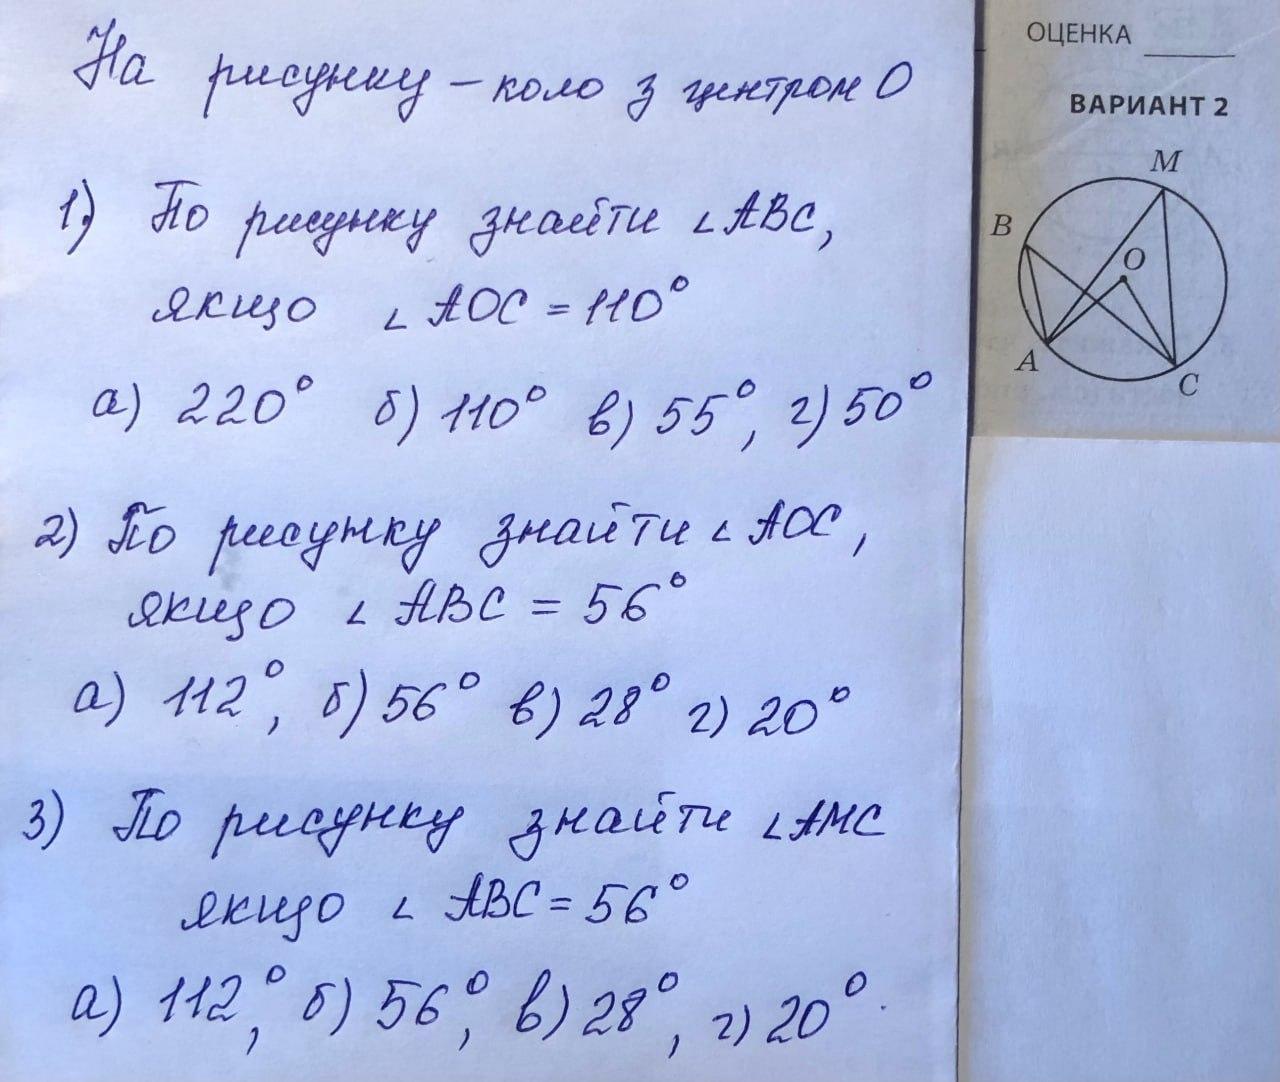 На рисунку – коло з центром О
1) По рисунку знайти ∠ABC,
якщо ∠AOC = 110°
а) 220° б) 110° в) 55°, г) 50°
2) По рисунку знайти ∠AOC,
якщо ∠ABC = 56°
а) 112°, б) 56° в) 28° г) 20°
3) По рисунку знайти ∠AMC
якщо ∠ABC = 56°
а) 112°, б) 56°, в) 28°, г) 20°.
ОЦЕНКА
ВАРИАНТ 2
M
B
O
A
C